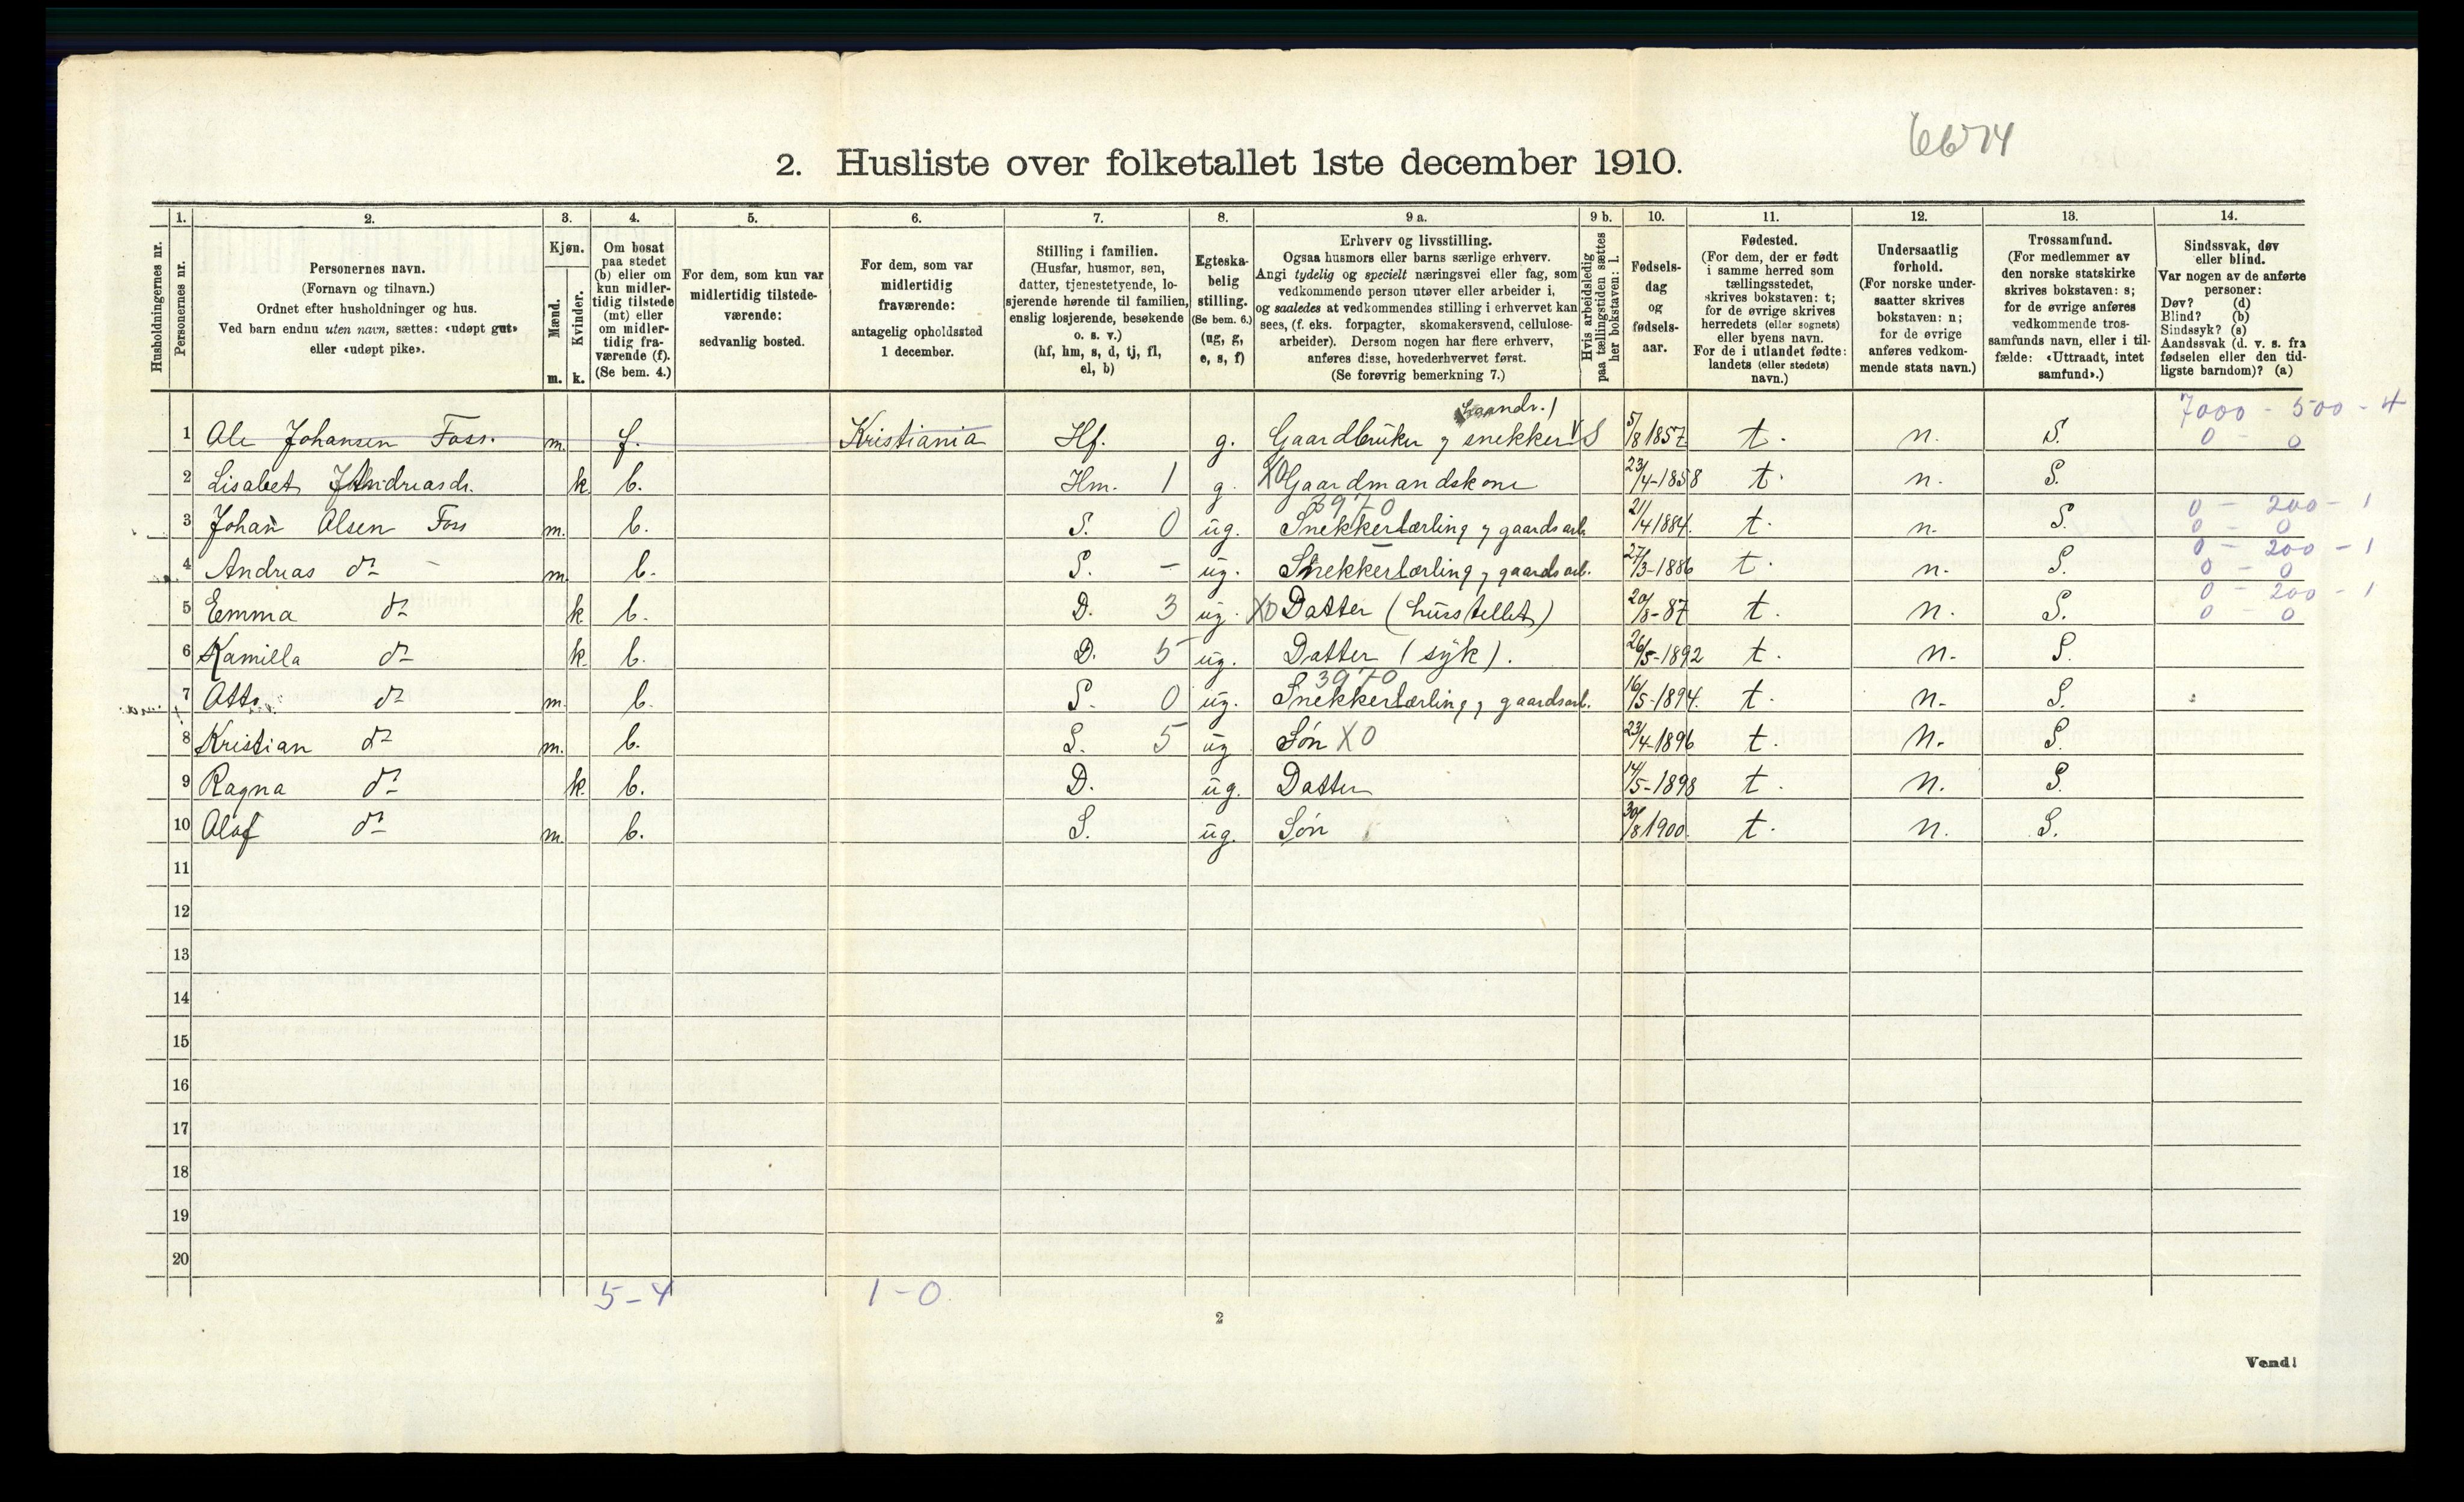 6674
2. Husliste over folketallet 1ste december 1910.
Husholdningernes nr.
1. Personernes nr.
2. Personernes navn.
(Fornavn og tilnavn.)
Ordnet efter husholdninger og hus.
Ved barn endnu uten navn, sættes: «udøpt gut»
eller «udøpt pike».
3. Kjøn.
Mænd. m.
Kvinder. k.
4. Om bosat
paa stedet
(b) eller om
kun midler-
tidig tilstede
(mt) eller
om midler-
tidig fra-
værende (f).
(Se bem. 4.)
5. For dem, som kun var
midlertidig tilstede-
værende:
sedvanlig bosted.
6. For dem, som var
midlertidig
fraværende:
antagelig opholdssted
1 december.
7. Stilling i familien.
(Husfar, husmor, søn,
datter, tjenestetyende, lo-
sjerende hørende til familien,
enslig losjerende, besøkende
o. s. v.)
(hf, hm, s, d, tj, fl,
el, b)
8. Egteska-
belig
stilling.
(Se bem. 6.)
(ug, g,
e, s, f)
9 a. Erhverv og livsstilling.
Ogsaa husmors eller barns særlige erhverv.
Angi tydelig og specielt næringsvei eller fag, som
vedkommende person utøver eller arbeider i,
og saaledes at vedkommendes stilling i erhvervet kan
sees, (f. eks. forpagter, skomakersvend, cellulose-
arbeider). Dersom nogen har flere erhverv,
anføres disse, hovederhvervet først.
(Se forøvrig bemerkning 7.)
9 b. Hvis arbeidsledig
paa tællingstiden sættes
her bokstaven: l.
10. Fødsels-
dag
og
fødsels-
aar.
11. Fødested.
(For dem, der er født
i samme herred som
tællingsstedet,
skrives bokstaven: t;
for de øvrige skrives
herredets (eller sognets)
eller byens navn.
For de i utlandet fødte:
landets (eller stedets)
navn.)
12. Undersaatlig
forhold.
(For norske under-
saatter skrives
bokstaven: n;
for de øvrige
anføres vedkom-
mende stats navn.)
13. Trossamfund.
(For medlemmer av
den norske statskirke
skrives bokstaven: s;
for de øvrige anføres
vedkommende tros-
samfunds navn, eller i til-
fælde: «Uttraadt, intet
samfund».)
14. Sindssvak, døv
eller blind.
Var nogen av de anførte
personer:
Døv? (d)
Blind? (b)
Sindssyk? (s)
Aandssvak (d. v. s. fra
fødselen eller den tid-
ligste barndom)? (a)
7000 - 500 - 4
1 Ole Johansen Foss. m. f. Kristiania Hf. g. Gaardbruker og snekker S 5/8 1857 t. n. S. 0 - 0
2 Lisabet Andreasdr. k b. Hm. 1 g. X0 Gaardmandskone 23/4-1858 t. n. S.
3970 0 - 200 - 1
3 Johan Olsen Foss m. b. S. 0 ug. Snekkerlærling og gaardsarb. 21/4 1884. t. n. S. 0 - 0
0 - 200 - 1
4 Andreas do - m b. S. - ug. Snekkerlærling og gaardsarb. 27/3-1886 t. n. S. 0 - 0
0 - 200 - 1
5 Emma do k b. D. 3 ug. X0 Datter (husstellet) 20/8-87 t. n. S. 0 - 0
6 Kamilla do k. b. D. 5 ug. Datter (syk). 26/5-1892 t. n. S.
3970
7 Otto do m. b. S. 0 ug. Snekkerlærling, gaardsarb. 16/5-1894. t. n. S.
8 Kristian do m. b. S. 5 ug Søn X0 23/4-1896 t. n. S.
9 Ragna do k. b. D. ug. Datter 14/5-1898 t. n. S.
10 Olaf do m. b. S. ug. Søn 30/8 1900. t. n. S.
11
12
13
14
15
16
17
18
19
20
5 - 4 1 - 0
2
Vend!